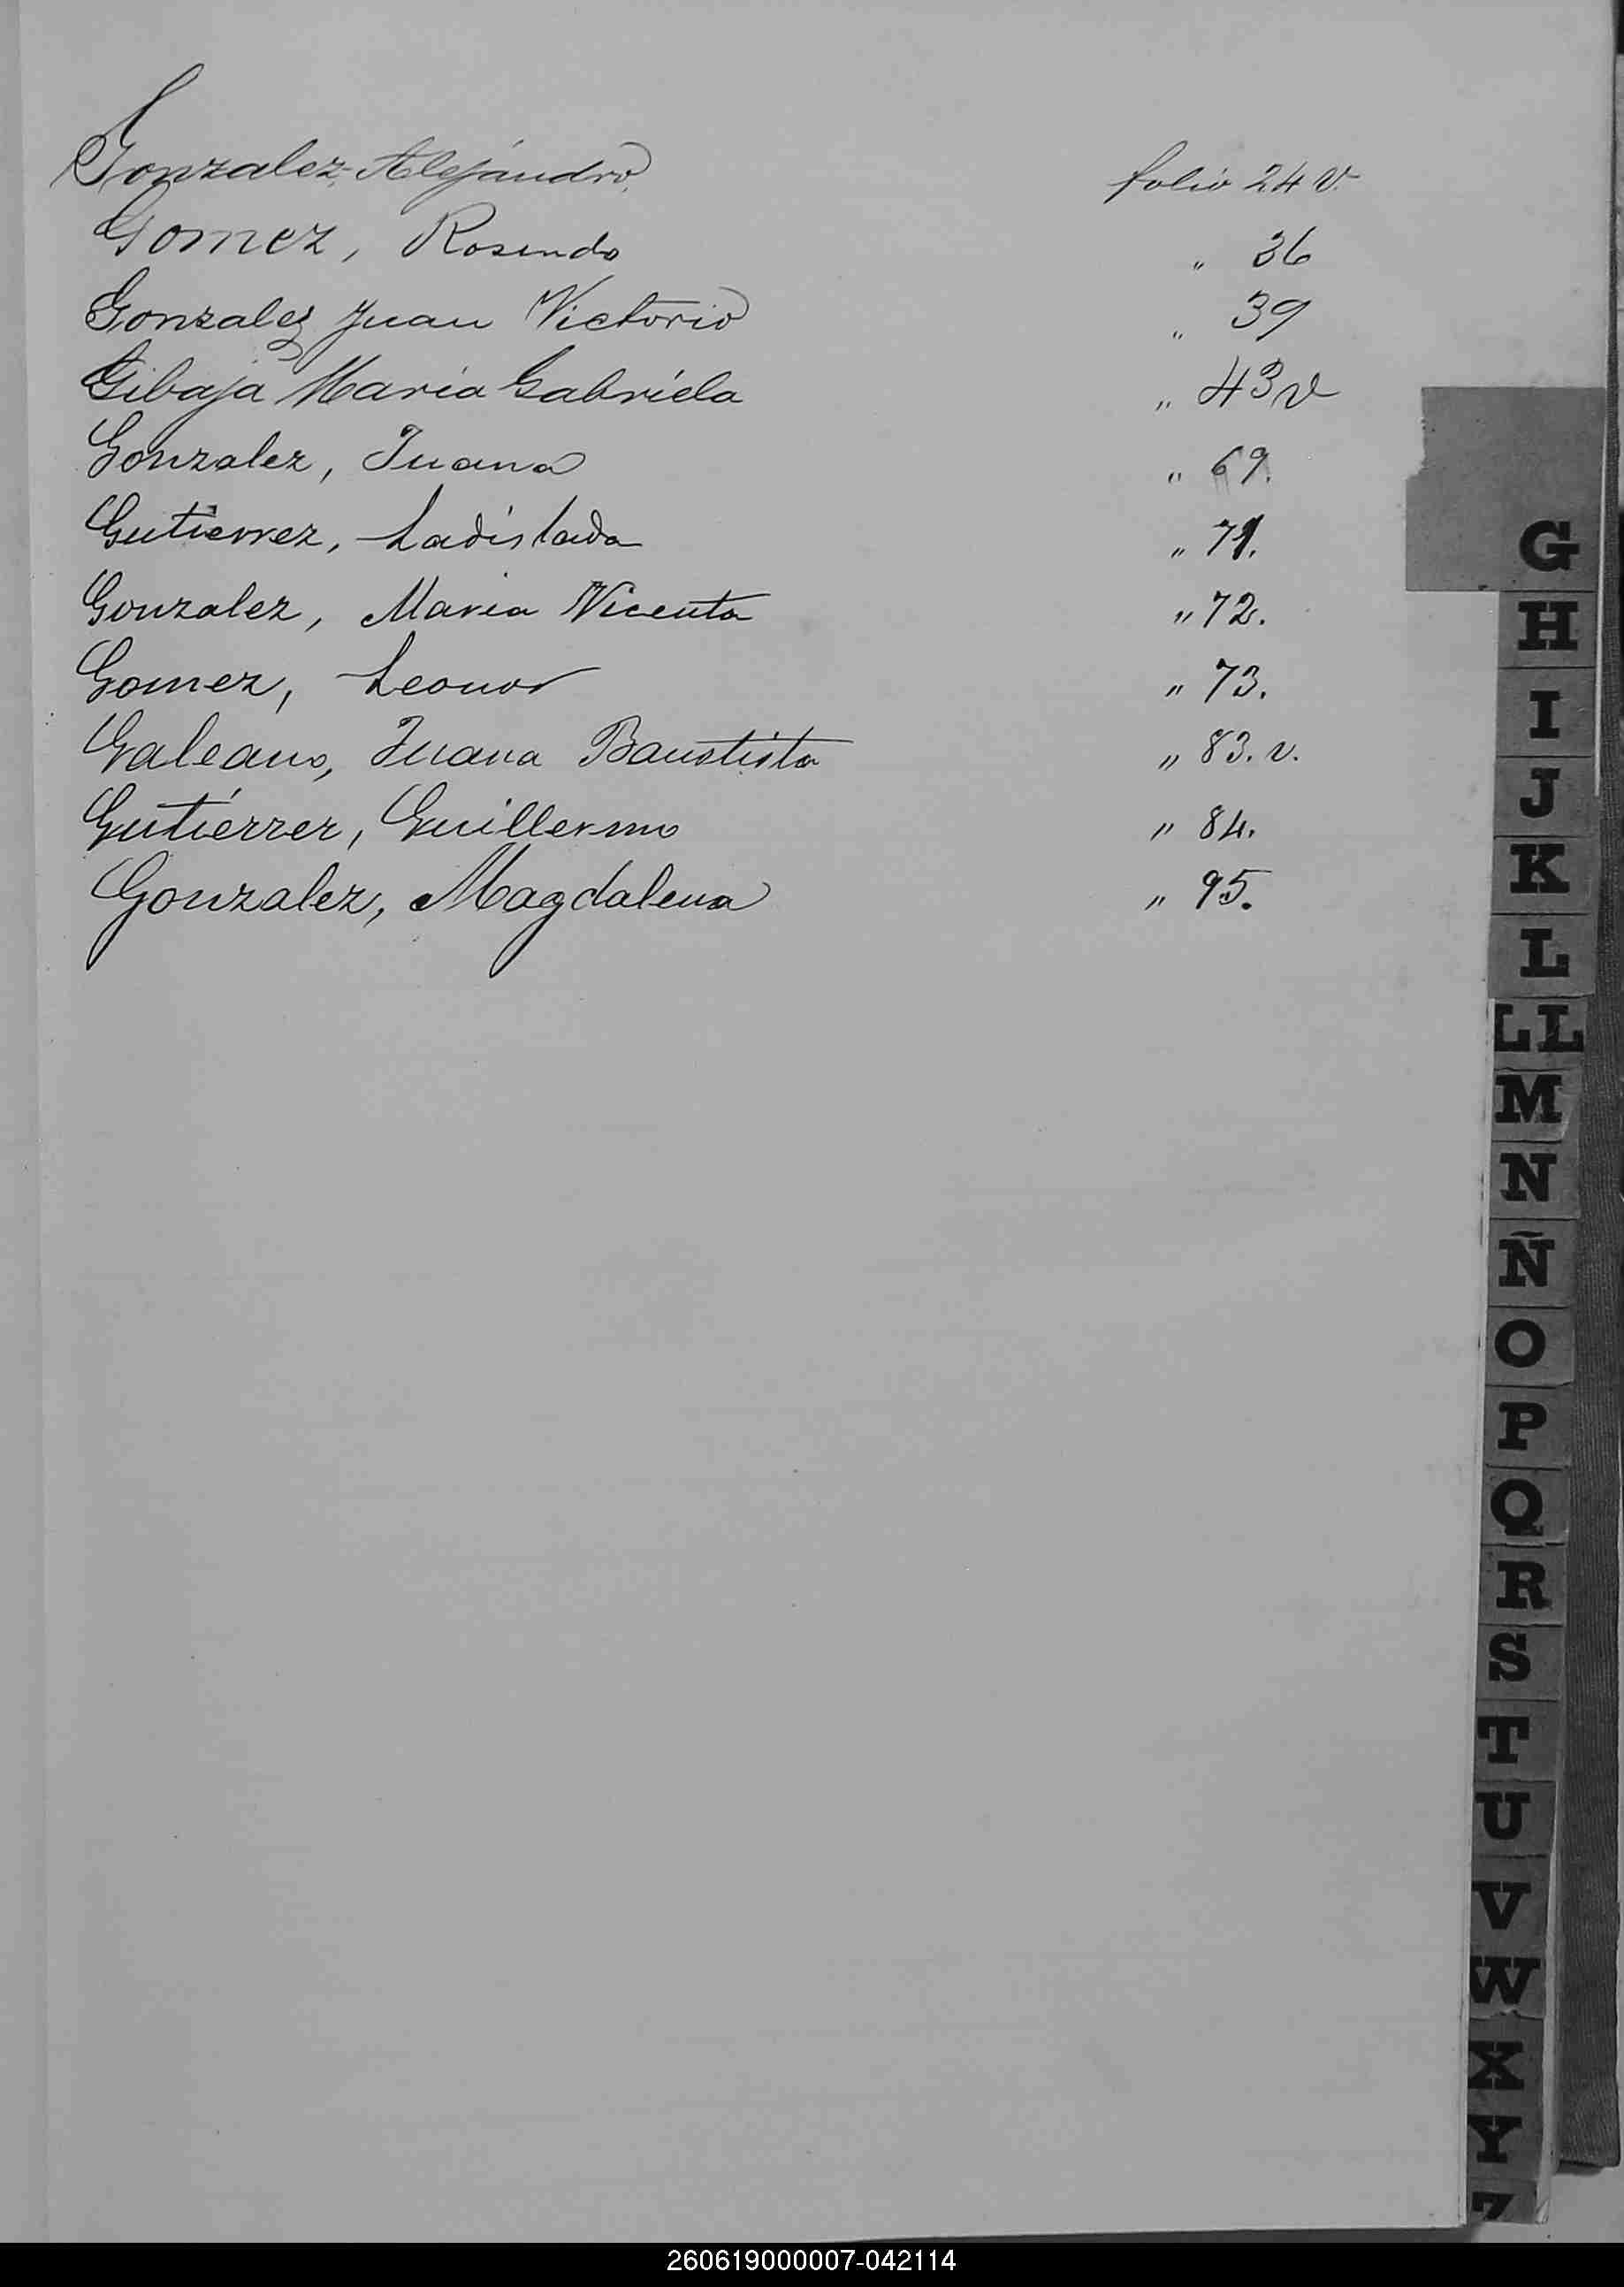 Gonzalez Alejandro folio 24 v.
Gomez, Rosendo " 36
Gonzalez Juan Victorio " 39
Gibaja Maria Gabriela " 43 v
Gonzalez, Juana " 69.
Gutierrez, Ladislada " 71.
Gonzalez, Maria Vicenta " 72.
Gomez, Leonor " 73.
Galeano, Juana Baustista " 83. v.
Gutiérrez, Guillermo " 84.
Gonzalez, Magdalena " 95.
G
H
I
J
K
L
LL
M
N
Ñ
O
P
Q
R
S
T
U
V
W
X
Y
Z
260619000007-042114